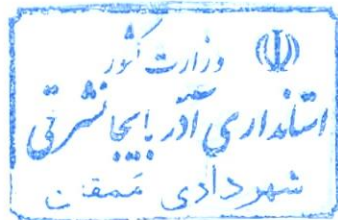 وزارت کشور
استانداری آذربایجانشرقی
شهرداری ممقان